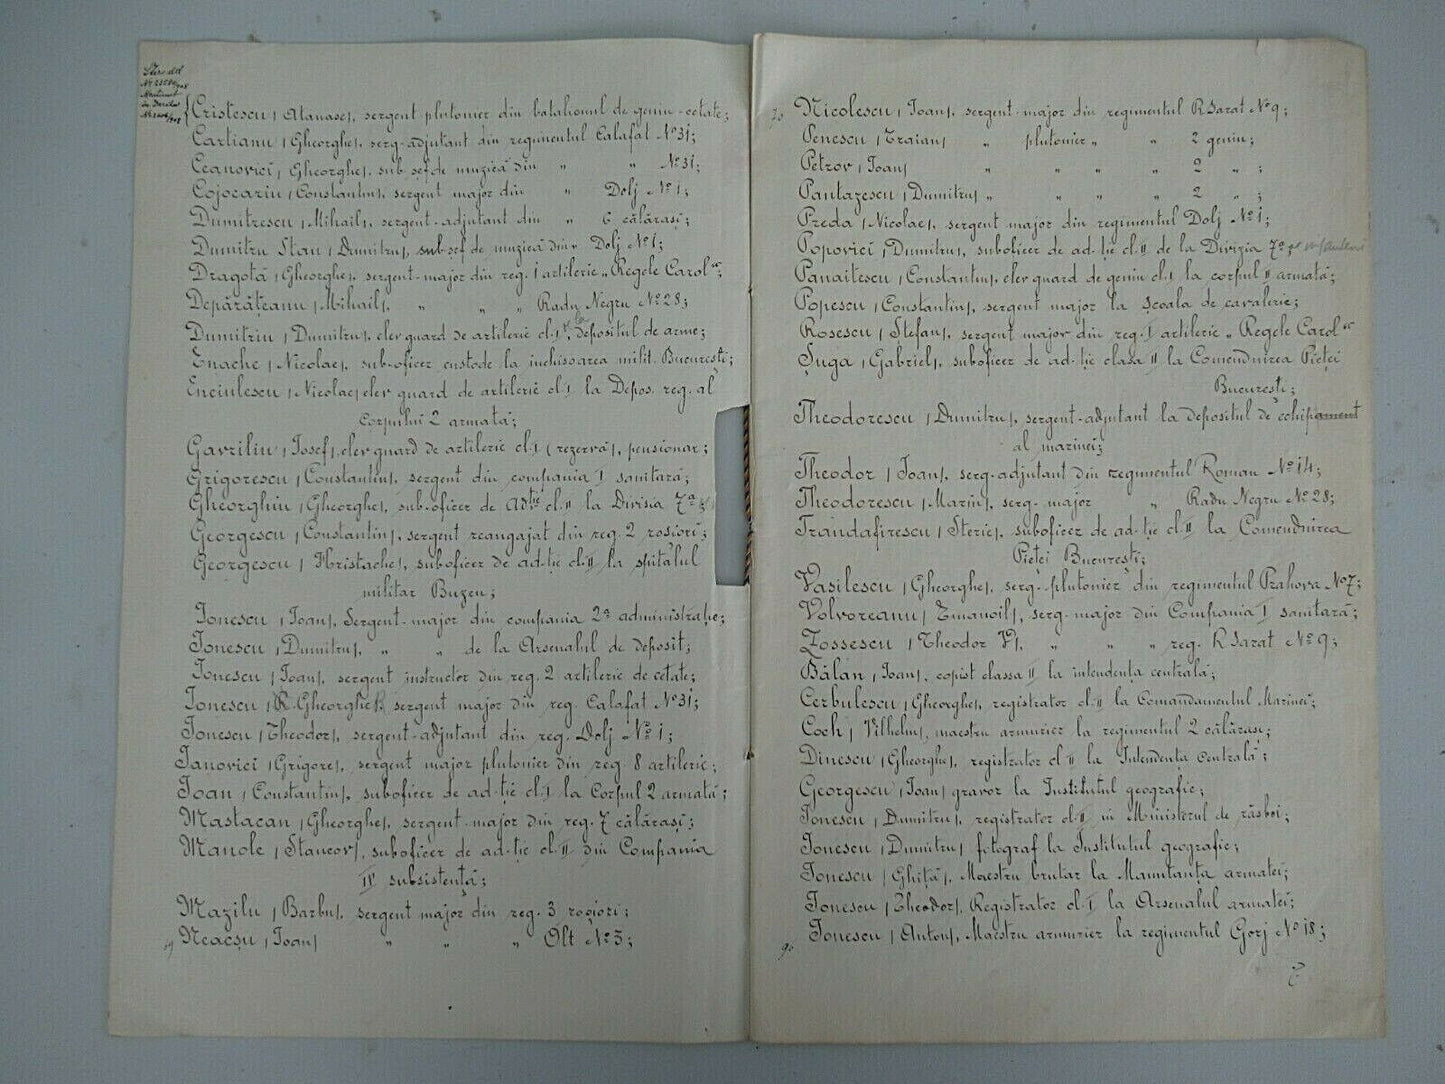 Cristescu (Atanase), sergent plutonier din batalionul de geniu-cetate;
Cartianu (Gheorghe), serg-adjutant din regimentul Calafat № 31;
Ceanovici (Gheorghe), sub șef de muzică din " " № 31;
Cojocariu (Constantin), sergent major din " Dolj № 1;
Dumitrescu (Mihail), sergent-adjutant din " 6 călărași;
Dumitru Stan (Dumitru), sub șef de muzică din " Dolj № 1;
Dragotă (Gheorghe), sergent-major din reg. 1 artilerie „Regele Carol";
Depărățeanu (Mihail), " " " Radu Negru № 28;
Dumitriu (Dumitru), elev guard de artilerie cl. I, la depositul de arme;
Enache (Nicolae), sub-oficer custode la închisoarea milit. București;
Enciulescu (Nicolae) elev guard de artilerie cl. I la Depos. reg. al
Corpului 2 armată;
Gavriliu (Iosef), elev guard de artilerie cl. I (rezervă), pensionar;
Grigorescu (Constantin), sergent din compania I sanitară;
Gheorghiu (Gheorghe), sub-oficer de Adție cl. II la Divisia 7ª;
Georgescu (Constantin), sergent reangajat din reg. 2 roșiori;
Georgescu (Hristache), suboficer de ad-ție cl. II la spitalul
militar Buzeu;
Ionescu (Ioan), Sergent-major din compania 2ª administrație;
Ionescu (Dumitru), " " de la Arsenalul de deposit;
Ionescu (Ioan), sergent instructor din reg. 2 artilerie de cetate;
Ionescu (R. Gheorghe), sergent major din reg. Calafat № 31;
Ionescu (Theodor), sergent-adjutant din reg. Dolj № 1;
Ianovici (Grigore), sergent major plutonier din reg. 8 artilerie;
Ioan (Constantin), suboficer de ad-ție cl. I la Corpul 2 armată;
Mastacan (Gheorghe), sergent-major din reg. 7 călărași;
Manole (Stancov), suboficer de ad-ție cl. II din Compania
IV subsistență;
Mazilu (Barbu), sergent major din reg. 3 roșiori;
Neacșu (Ioan) " " " Olt № 3;
70 Nicolescu (Ioan), sergent-major din regimentul R Sarat № 9;
Penescu (Traian) " plutonier " " 2 geniu;
Petrov (Ioan) " " " " 2 " ;
Pantazescu (Dumitru) " " " " 2 " ;
Preda (Nicolae), sergent major din regimentul Dolj № 1;
Popovici (Dumitru), suboficer de ad-ție cl. II de la Divizia 7ª
Panaitescu (Constantin), elev guard de geniu cl. I la corpul II armată;
Popescu (Constantin), sergent major la Școala de cavalerie;
Rosescu (Stefan), sergent major din reg. I artilerie „Regele Carol"
Șuga (Gabriel), suboficer de ad-ție clasa II la Comenduirea Pieței
București;
Theodorescu (Dumitru), sergent-adjutant la depositul de echipament
al marinei;
Theodor (Ioan), serg-adjutant din regimentul Roman № 14;
Theodorescu (Marin), serg-major " Radu Negru № 28;
Trandafirescu (Sterie), suboficer de ad-ție cl. II la Comenduirea
Pieței București;
Vasilescu (Gheorghe), serg-plutonier din regimentul Prahova № 7;
Volvoreanu (Emanoil), serg-major din Compania I sanitară;
Zossescu (Theodor V), " " " reg. R Sarat № 9;
Bălan (Ioan), copist classa II la intendența centrală;
Cerbulescu (Gheorghe), registrator cl. II la Comandamentul Marinei;
Coch (Vilhelm), maestru armurier la regimentul 2 călărași;
Dinescu (Gheorghe), registrator cl II la Intendența Centrală;
Georgescu (Ioan) gravor la Institutul geografic;
Ionescu (Dumitru), registrator cl. II în Ministerul de răsboi;
Ionescu (Dumitru) fotograf la Institutul geografic;
Ionescu (Ghiță), Maestru brutar la Manutanța armatei;
Ionescu (Theodor), Registrator cl. I la Arsenalul armatei;
90 Ionescu (Anton), Maestru armurier la regimentul Gorj № 18;